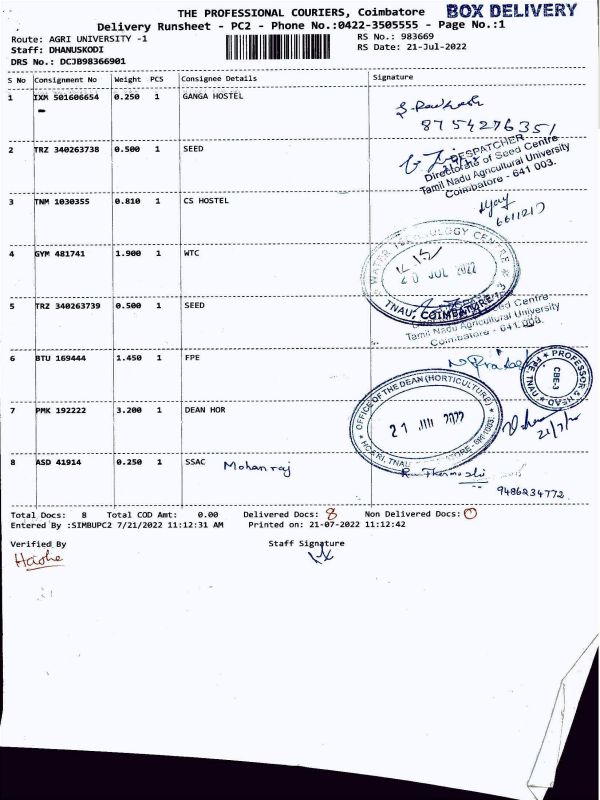 THE PROFESSIONAL COURIERS, Coimbatore BOX DELIVERY
Delivery Runsheet - PC2 - Phone No.:0422-3505555 - Page No.:1
Route: AGRI UNIVERSITY -1 RS No.: 983669
Staff: DHANUSKODI RS Date: 21-Jul-2022
DRS No.: DCJB98366901
S No Consignment No Weight PCS Consignee Details Signature
1 IXM 501606654 0.250 1 GANGA HOSTEL
8754276351
2 TRZ 340263738 0.500 1 SEED
DESPATCHER
Directorate of Seed Centre
Tamil Nadu Agricultural University
Coimbatore - 641 003.
3 TNM 1030355 0.810 1 CS HOSTEL
4 GYM 481741 1.900 1 WTC
WATER TECHNOLOGY CENTRE
20 JUL 2022
TNAU, COIMBATORE - 3
5 TRZ 340263739 0.500 1 SEED
Seed Centre
Tamil Nadu Agricultural University
Coimbatore - 641 003.
6 BTU 169444 1.450 1 FPE
PROFESSOR & HEAD
FPE, TNAU
CBE-3
7 PMK 192222 3.200 1 DEAN HOR
OFFICE OF THE DEAN (HORTICULTURE)
21 2022
HC&RI, TNAU
21/7/22
8 ASD 41914 0.250 1 SSAC Mohanraj
9486234772
Total Docs: 8 Total COD Amt: 0.00 Delivered Docs: 8 Non Delivered Docs: 0
Entered By :SIMBUPC2 7/21/2022 11:12:31 AM Printed on: 21-07-2022 11:12:42
Verified By Staff Signature